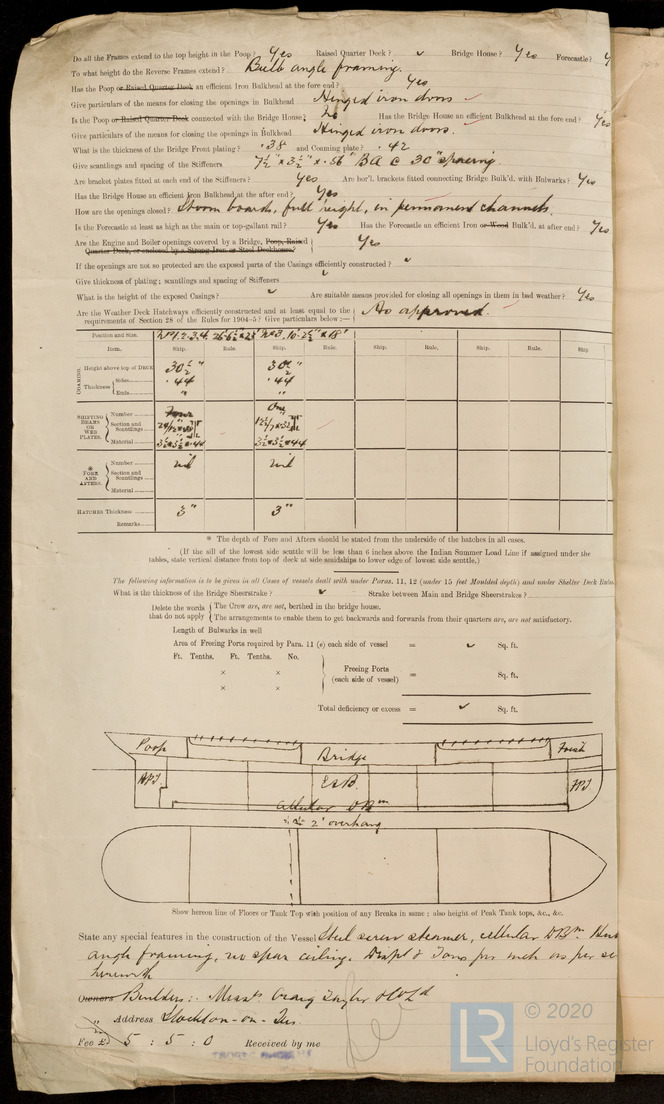 Do all the Frames extend to the top height in the Poop? Yes Raised Quarter Deck? ✓ Bridge House? Yes Forecastle? Y
To what height do the Reverse Frames extend? Bulb angle framing.
Has the Poop or Raised Quarter Deck an efficient Iron Bulkhead at the fore end? Yes
Give particulars of the means for closing the openings in Bulkhead Hinged iron doors
Is the Poop or Raised Quarter Deck connected with the Bridge House? No Has the Bridge House an efficient Bulkhead at the fore end? Yes
Give particulars of the means for closing the openings in Bulkhead Hinged iron doors.
What is the thickness of the Bridge Front plating? .38 and Coaming plate? .42
Give scantlings and spacing of the Stiffeners 7½" x 3½" x .56 BA @ 30" spacing.
Are bracket plates fitted at each end of the Stiffeners? Yes Are hor'l. brackets fitted connecting Bridge Bulk'd. with Bulwarks? Yes
Has the Bridge House an efficient Iron Bulkhead at the after end? Yes
How are the openings closed? Storm boards, full height, in permanent channels.
Is the Forecastle at least as high as the main or top-gallant rail? Yes Has the Forecastle an efficient Iron or Wood Bulk'd. at after end? Yes
Are the Engine and Boiler openings covered by a Bridge, Poop, Raised
Quarter Deck, or enclosed by a Strong Iron or Steel Deckhouse? Yes
If the openings are not so protected are the exposed parts of the Casings efficiently constructed? ✓
Give thickness of plating; scantlings and spacing of Stiffeners ✓
What is the height of the exposed Casings? ✓ Are suitable means provided for closing all openings in them in bad weather? Yes
Are the Weather Deck Hatchways efficiently constructed and at least equal to the
requirements of Section 28 of the Rules for 1904-5? Give particulars below:— As approved.
Position and Size.
Item. Ship. Rule. Ship. Rule. Ship. Rule. Ship. Rule. Ship
COAMING.
Height above top of DECK 30½" 30½"
Thickness Sides .44 .44
Ends " "
SHIFTING BEAMS OR WEB PLATES.
Number Four One
Section and Scantlings
Material
* FORE AND AFTERS.
Number nil nil
Section and Scantlings
Material
HATCHES Thickness 3" 3"
Remarks
* The depth of Fore and Afters should be stated from the underside of the hatches in all cases.
(If the sill of the lowest side scuttle will be less than 6 inches above the Indian Summer Load Line if assigned under the
tables, state vertical distance from top of deck at side amidships to lower edge of lowest side scuttle.)
The following information is to be given in all Cases of vessels dealt with under Paras. 11, 12 (under 15 feet Moulded depth) and under Shelter Deck Rules
What is the thickness of the Bridge Sheerstrake? ✓ Strake between Main and Bridge Sheerstrakes?
Delete the words that do not apply
The Crew are, are not, berthed in the bridge house.
The arrangements to enable them to get backwards and forwards from their quarters are, are not satisfactory.
Length of Bulwarks in well
Area of Freeing Ports required by Para. 11 (e) each side of vessel = ✓ Sq. ft.
Ft. Tenths. Ft. Tenths. No.
× ×
Freeing Ports (each side of vessel) = Sq. ft.
× ×
Total deficiency or excess = ✓ Sq. ft.
Poop Bridge
APT E&B. FPT
Cellular DBm
2' overhang
Show hereon line of Floors or Tank Top with position of any Breaks in same; also height of Peak Tank tops, &c., &c.
State any special features in the construction of the Vessel Steel screw steamer, cellular DBm.
angle framing, no spar ceiling. Displt & Tons per inch as per
herewith
Owners Builders:- Messrs Craig Taylor & Co Ld
" Address Stockton-on-Tees.
Fee £ 5 : 5 : 0 Received by me
LR © 2020
Lloyd's Register
Foundation